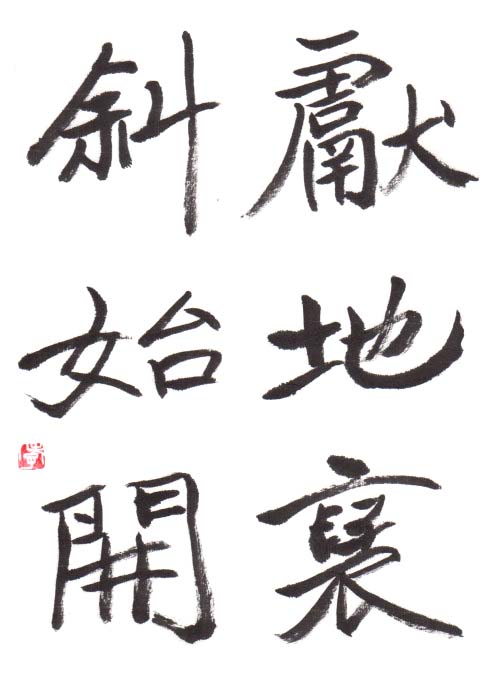 獻地褒
斜始開